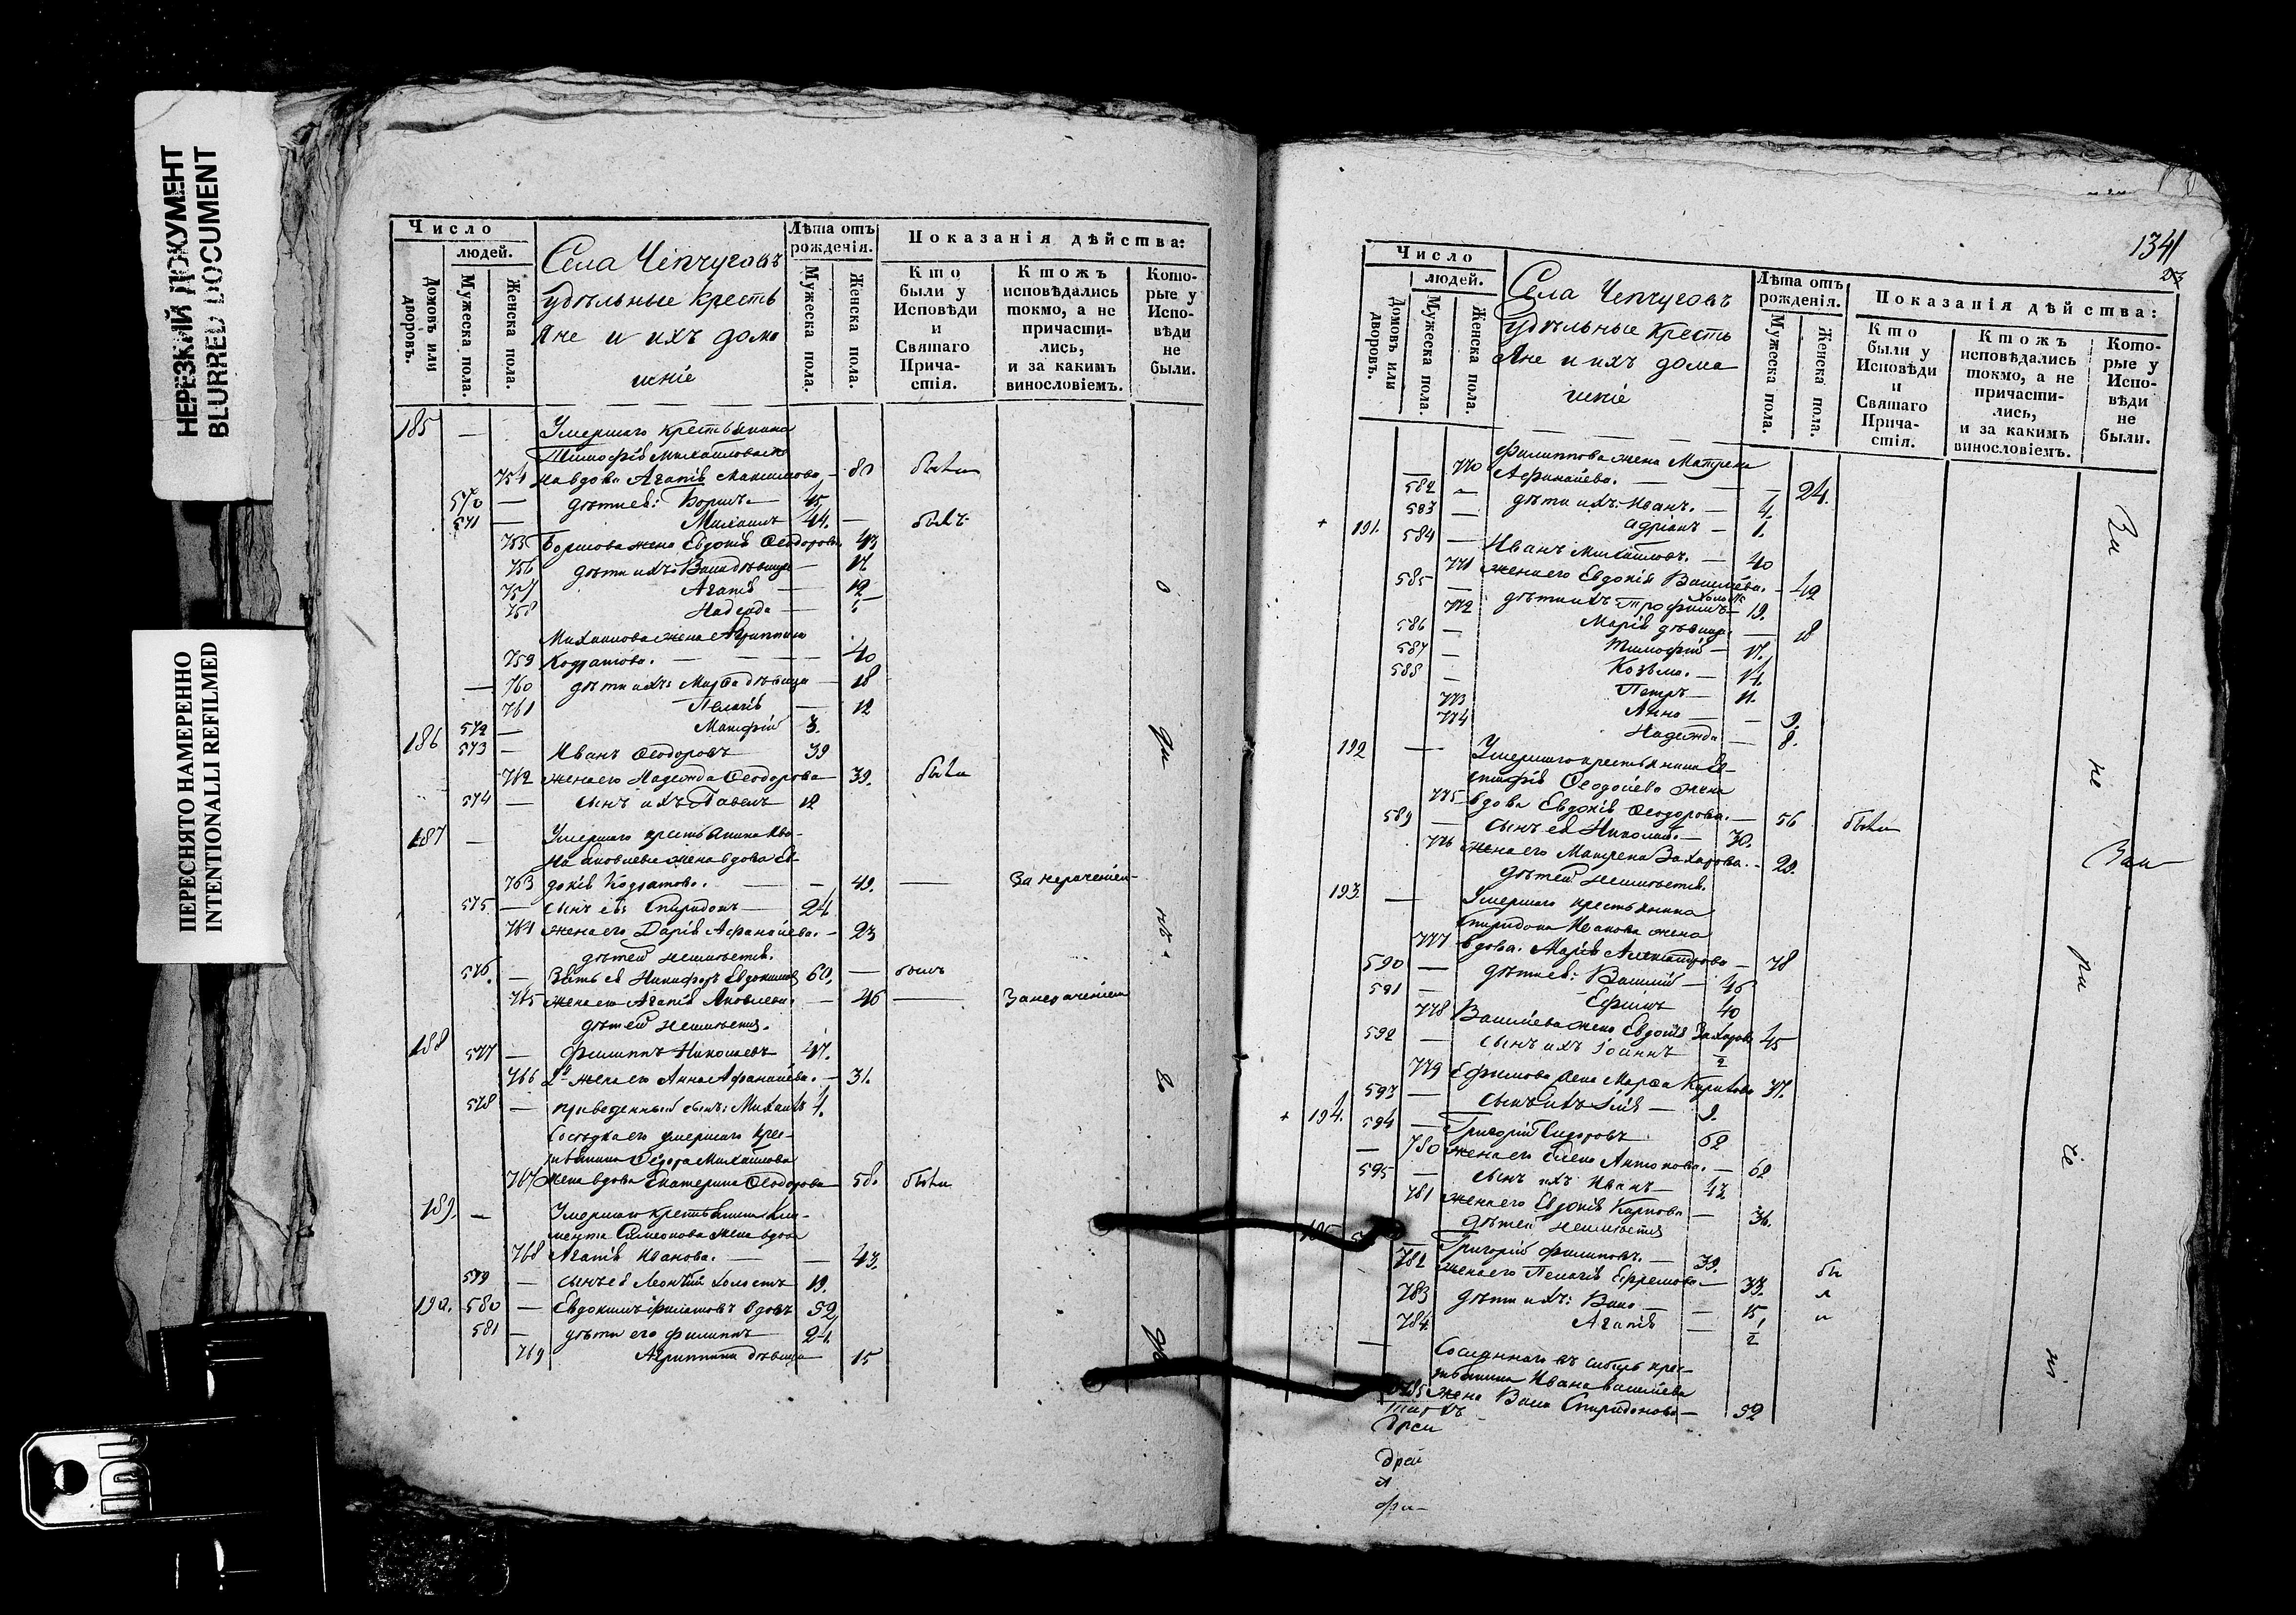 НЕРЕЗКИЙ ДОКУМЕНТ
BLURRED DOCUMENT
ПЕРЕСНЯТО НАМЕРЕННО
INTENTIONALLI REFILMED
Число
людей.
Домовъ или дворовъ.
Мужеска пола.
Женска пола.
Села Чепчуговъ
удѣльные кресть
яне и ихъ дома
шніе
Лѣта отъ рожденія.
Мужеска пола.
Женска пола.
Показанія дѣйства:
Кто были у Исповѣди и Святаго Прича-стія.
Ктожъ исповѣдались токмо, а не причасти-лись, и за какимъ винословіемъ.
Кото-рые у Испо-вѣди не были.
185 — Умершаго крестьянина
Тимофея Михайлова же
754 на вдова Агапія Максимова — 80 были
570 — дѣти ея: Борисъ 45
571 — Михаилъ 44. — былъ
755 Борисова жена Евдокія Ѳеодорова 43
756 дѣти ихъ: Васса дѣвица — 17
757 Агапія — 12
758 Надежда — 5
Михаилова жена Агриппина
759 Кодратова. — 40
— 760 дѣти ихъ: Марѳа дѣвица — 18
761 Пелагія — 12
572 — Матфій 3.
186 573 — Иванъ Ѳеодоровъ 39
762 жена его Надежда Ѳеодорова 39. были
574 — сынъ ихъ Павелъ 12
187 — Умершаго крестьянина Ива-
на Яковлева жена вдова Ев-
763 докія Кодратова. — — 49. — За нераченіем
575 — сынъ ея: Спиридонъ — 24
764 жена его Дарія Аѳанасіева. — 23
дѣтей неимѣетъ.
576. — Зять ея Никифоръ Евдокимовъ 60. — былъ
765 жена его Агапія Яковлева. — 46 — За нераченіем
дѣтей неимѣетъ.
188 577 — Филиппъ Николаевъ 47.
766 2я жена его Анна Аѳанасіева. — 31.
578 — приведенный сынъ: Михаилъ 4.
Сосѣдка его умершаго крес-
тьянина Ѳедора Михайлова
767 жена вдова Екатерина Ѳеодорова 58. были
189. — Умершаго крестьянина Кли-
мента Симеонова жена вдова
768 Агапія Иванова. — — 43.
579 — сынъ ея Леонтій холостъ 19.
190. 580 — Евдокимъ Филиповъ вдовъ 52
581 — дѣти его Филиппъ 24.
769 Агриппина дѣвица 15
134
Число
людей.
Домовъ или дворовъ.
Мужеска пола.
Женска пола.
Села Чепчуговъ
удѣльные кресть
яне и ихъ дома
шніе
Лѣта отъ рожденія.
Мужеска пола.
Женска пола.
Показанія дѣйства:
Кто были у Исповѣди и Святаго Прича-стія.
Ктожъ исповѣдались токмо, а не причасти-лись, и за какимъ винословіемъ.
Кото-рые у Испо-вѣди не были.
Филиппова жена Матрена
770 Аѳанасіева. — — 24.
582 — дѣти ихъ: Иванъ. — 4.
583 — Адріанъ — 1.
+ 191. 584 — Иванъ Михайловъ. — 40
771 жена его Евдокія Васильева. — 42
585 — дѣти ихъ Трофимъ холостъ 19.
772 Марія дѣвица — 18
586 — Тимофей — 17.
587 — Козьма. — 14.
588 — Петръ — 11.
773 Анна — — 9.
774 Надежда — 8.
192 — Умершаго крестьянина Ев-
стафія Ѳеодосіева жена
775 вдова Евдокія Ѳеодорова. — 56 были
589 — сынъ ея Николай. — 30.
776 жена его Матрена Захарова. — 20.
дѣтей неимѣетъ.
193. — Умершаго крестьянина
Спиридона Иванова жена
777 вдова Марія Александрова — 78
590 — дѣти ея: Василій — 46
591 — Ефимъ 40
778 Васильева жена Евдокія Захарова 45
592 — сынъ ихъ Іоаннъ ½
779 Ефимова жена Марѳа Карпова 37.
593 — сынъ ихъ Илія — 9.
+ 194. 594 — Григорій Сидоровъ 62
— 780 жена его Елена Антонова. — 62
595 — сынъ ихъ Иванъ — 42
781 жена его Евдокія Карпова — 36.
дѣтей неимѣетъ
195 Григорій Филиповъ. — 39.
782 жена его Пелагія Ефремова — 33. бы
783 дѣти ихъ: Васса — — 15 л
784. Агапія — ½ и
— Сосланнаго въ сибирь крес-
тьянина Ивана Васильева
785 жена Васса Спиридонова — 52